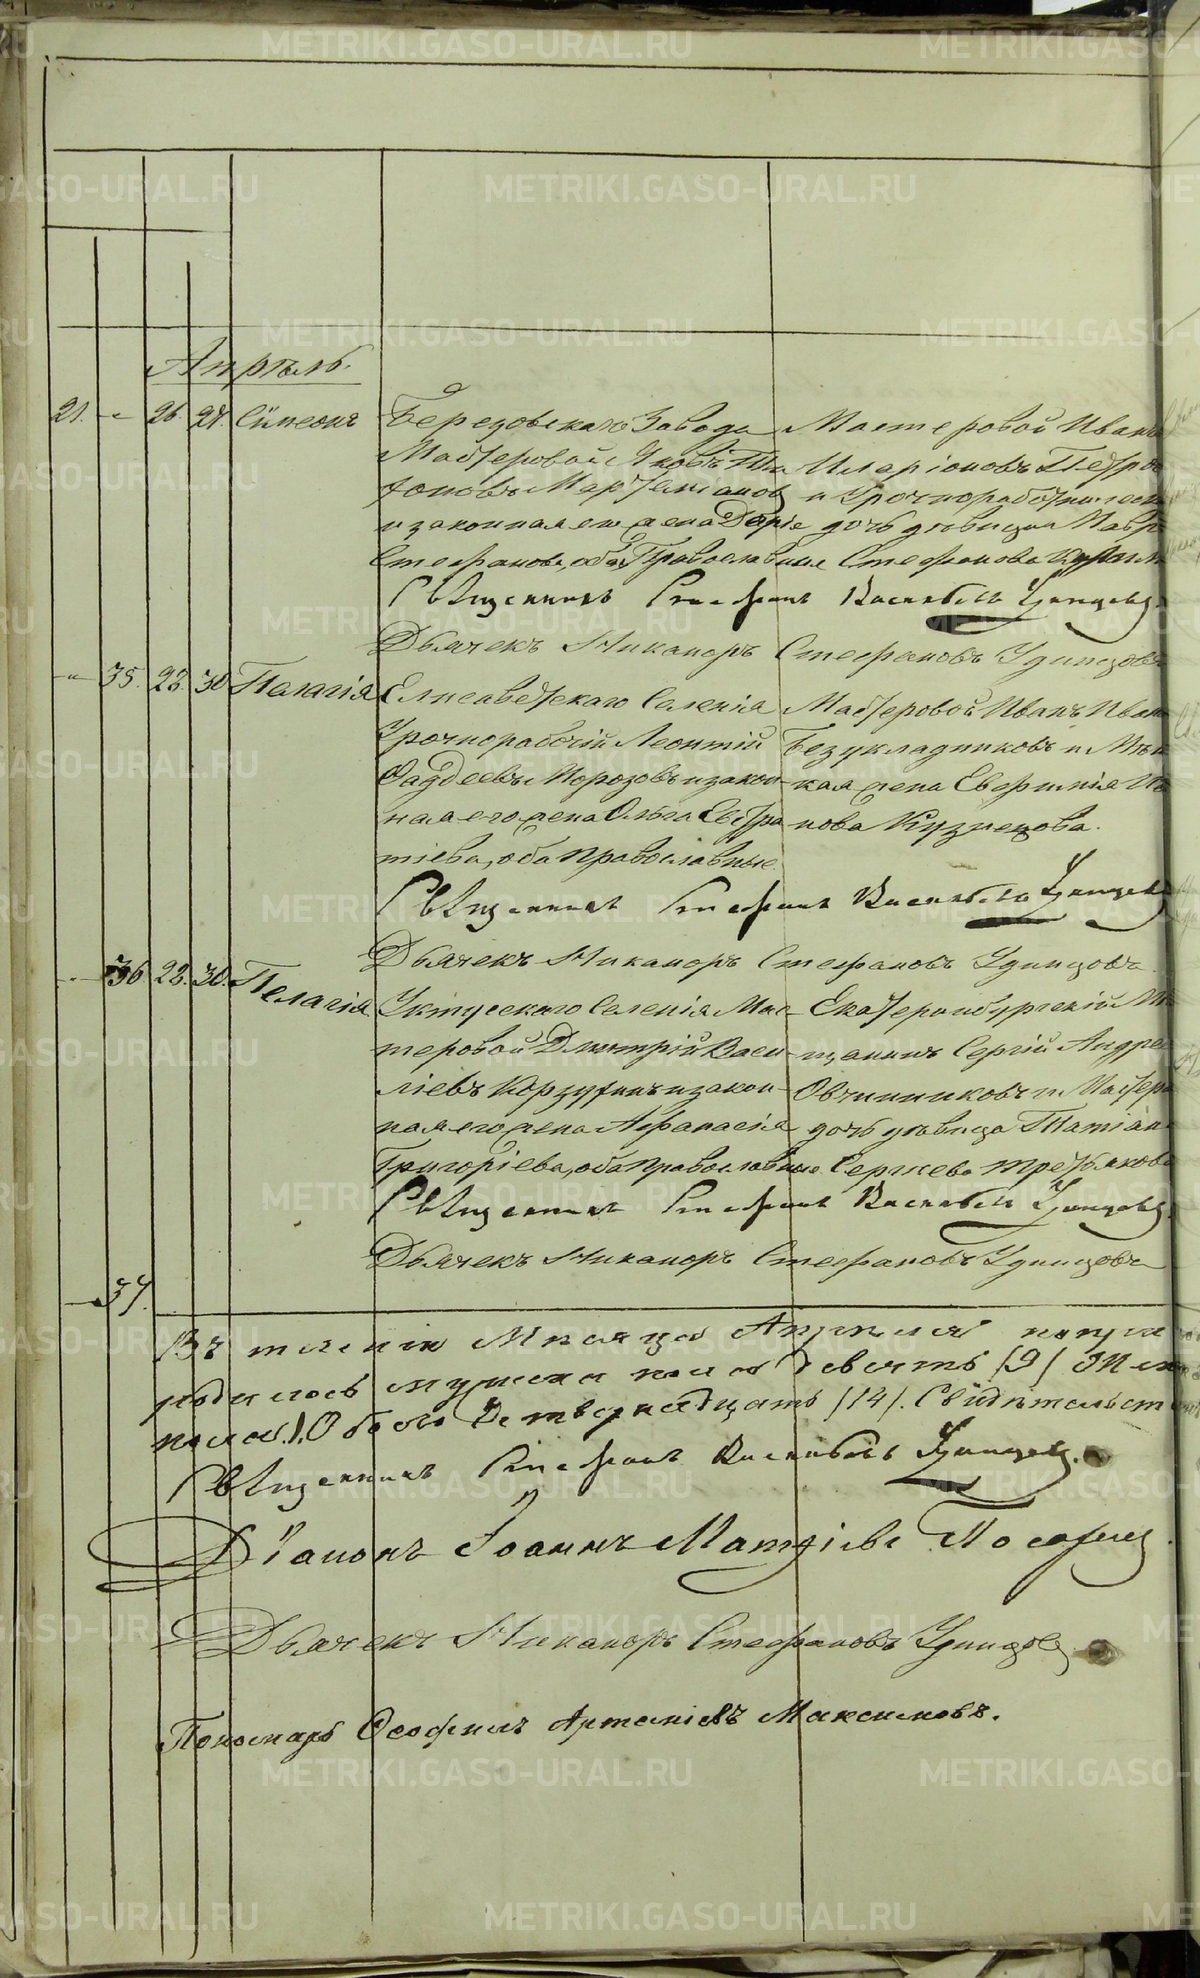 METRIKI.GASO-URAL.RU
Апрѣль.
21. - 26. 27. Сѵмеонъ
Березовскаго Завода
Мастеровой Яковъ
и законная его жена Дарiя
Стефанова, оба Православные
Мастеровой Иванъ
Иларiоновъ
дочь дѣвица
Стефанова
Священникъ Стефанъ Васильевъ Удинцовъ
Дьячекъ Никаноръ Стефановъ Удинцовъ
35. 23. 30 Палагiя
Елисаветскаго Селенiя
Урочнорабочiй Леонтiй
Фаддеевъ Морозовъ и закон-
ная его жена Ольга Евстра
тiева, оба православные
Мастеровой Иванъ Иван
Безукладниковъ и
жена Евфимiя
нова Кузнецова.
Священникъ Стефанъ Васильевъ Удинцовъ
Дьячекъ Никаноръ Стефановъ Удинцовъ
36 23. 30. Пелагiя
Уктусскаго Селенiя Мас-
теровой Дмитрiй Васи-
лiевъ Корзухинъ и закон-
ная его жена Афанасiя
Григорiева, оба православные
Екатеринбургскiй Мѣ
щанинъ Сергiй Андре
Овчинниковъ и Мастер
дочь дѣвица Татiан
Сергиева Третьякова
Священникъ Стефанъ Васильевъ Удинцовъ
Дьячекъ Никаноръ Стефановъ Удинцовъ
37.
Въ теченiи Мѣсяца Апрѣля
родилось мужеска пола девять /9/ Жен
пола Обоего Четырнадцать /14/. Свидѣтельст
Священникъ Стефанъ Васильевъ Удинцовъ.
Дiаконъ Iоаннъ Матѳiевъ
Дьячекъ Никаноръ Стефановъ Удинцовъ
Пономарь Ѳеофилъ Артемiевъ Максимовъ.